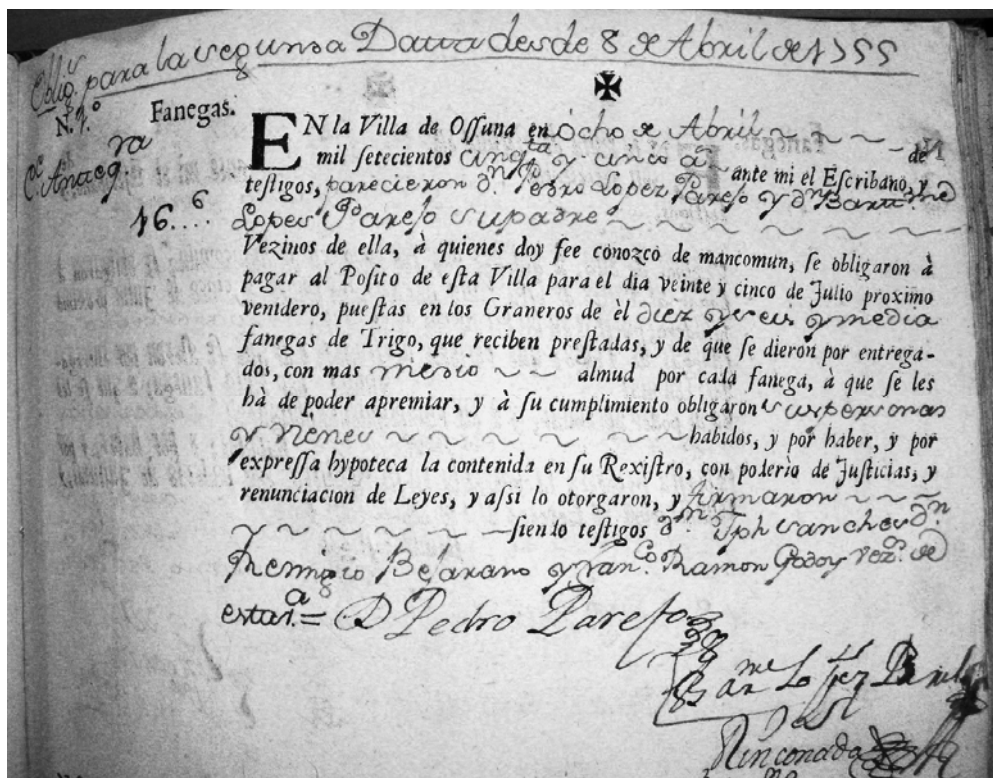 Oblig.ˢ para la segunda Data desde 8 de Abril de 1755
N. 1.º Fanegas.
EN la Villa de Ossuna en ocho de Abril de
mil setecientos cinqᵗᵃ y cinco aˢ ante mi el Escribano, y
testigos, parecieron dⁿ Pedro Lopez Parejo y dⁿ Bartt.ᵐᵉ
16....6 Lopes Parejo su padre
Vezinos de ella, à quienes doy fee conozco de mancomun, se obligaron à
pagar al Posito de esta Villa para el dia veinte y cinco de Julio proximo
venidero, puestas en los Graneros de èl diez y seis y media
fanegas de Trigo, que reciben prestadas, y de que se dieron por entrega-
dos, con mas medio almud por cada fanega, à que se les
hà de poder apremiar, y à su cumplimiento obligaron sus personas
y vienes habidos, y por haber, y por
expressa hypoteca la contenida en su Rexistro, con poderìo de Justicias, y
renunciacion de Leyes, y assi lo otorgaron, y firmaron
siendo testigos dⁿ Jph Sanches dⁿ
Remigio Bejarano y Fran.ᶜᵒ Ramon Godoy vez.ᵒˢ de
esta v.ᵃ = D Pedro Parejo
Barᵐᵉ Lopez
Rinconada